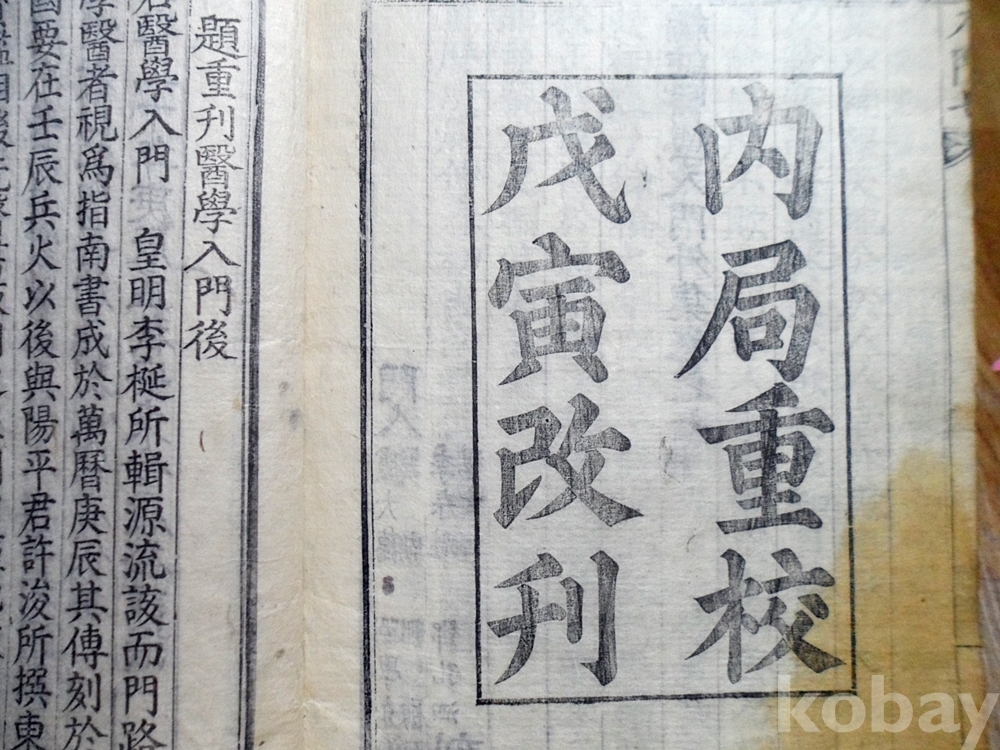 內局重校
戊寅改刊
題重刊醫學入門後
醫學入門 皇明李梴所輯源流該而門路
學醫者視爲指南書成於萬曆庚辰其傳刻於
要在壬辰兵火以後與陽平君許浚所撰東
kobay